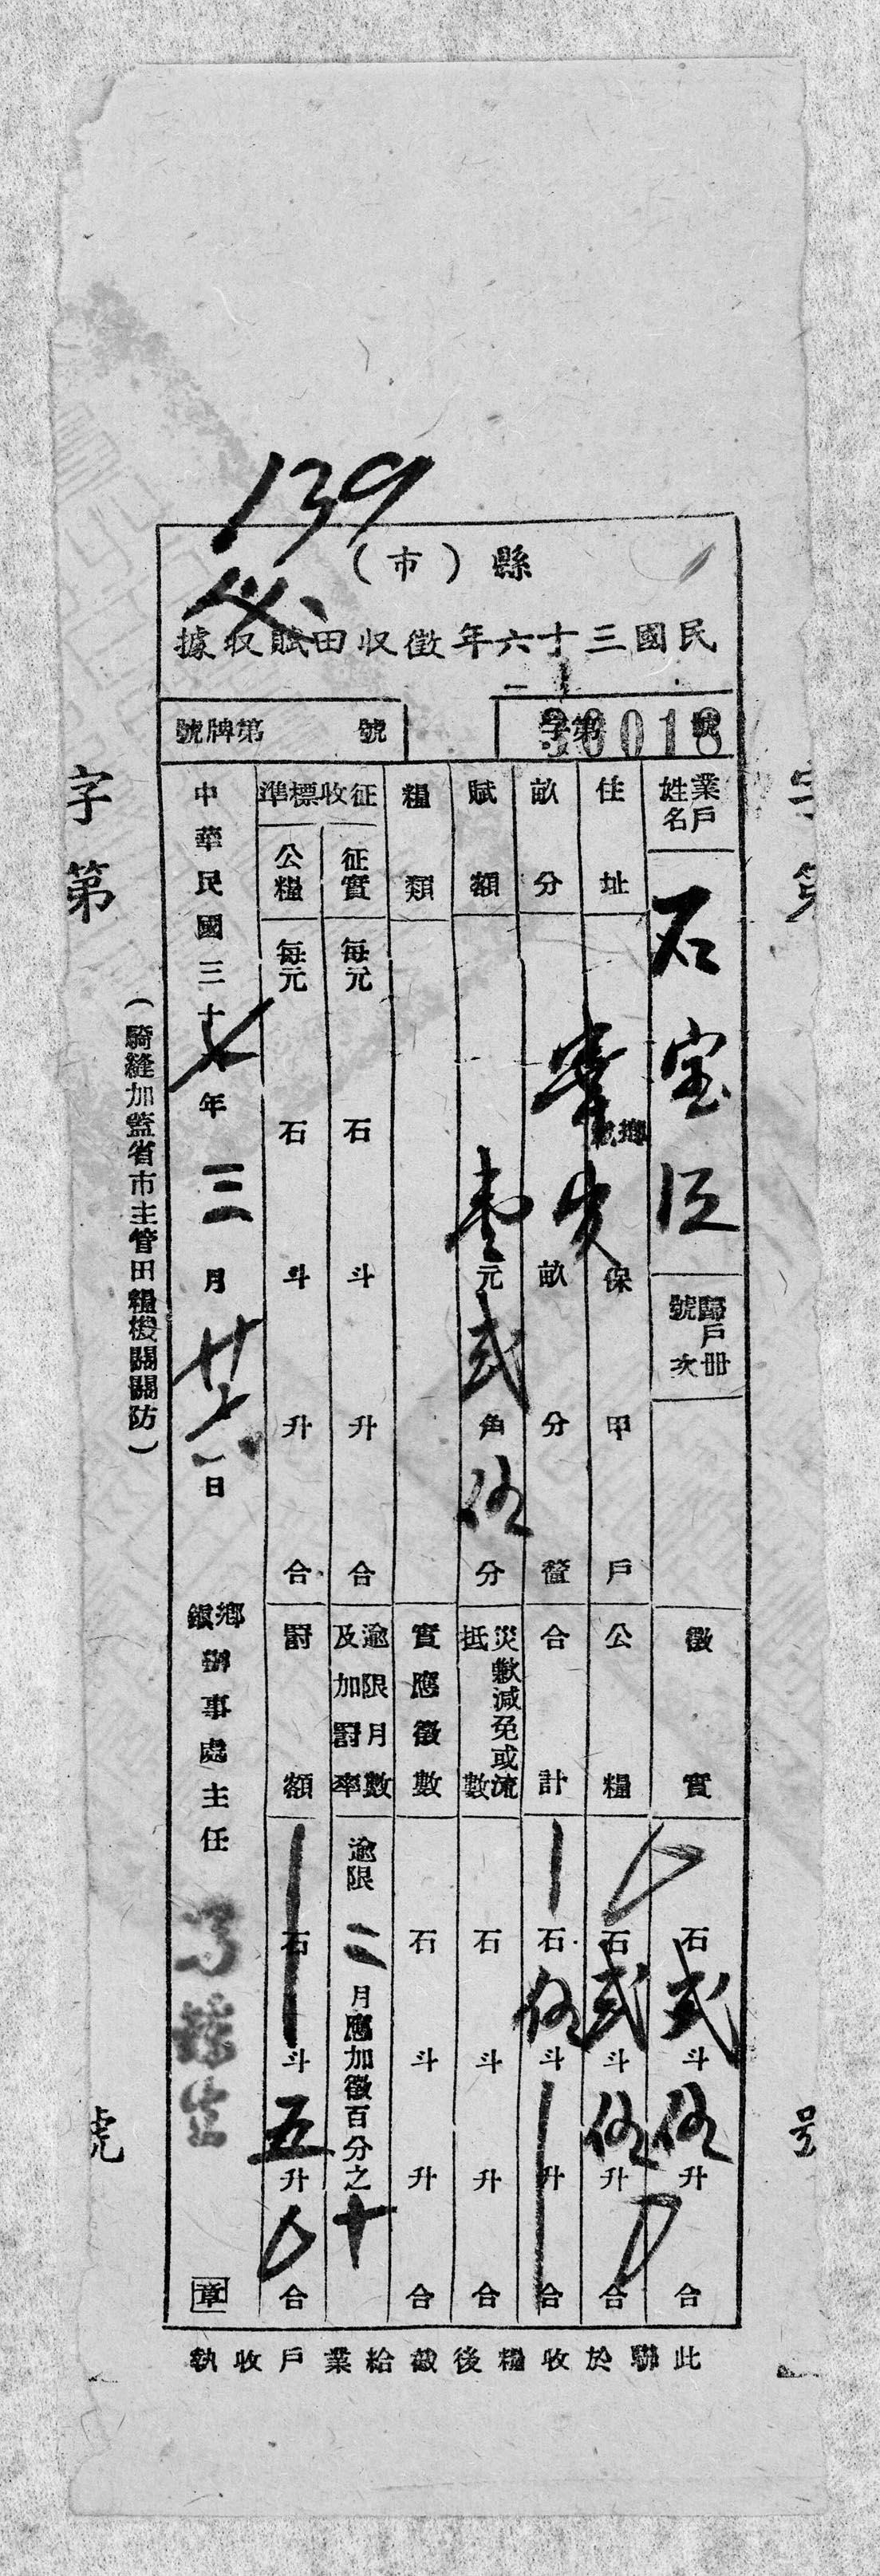 139
縣（市）
民國三十六年徵收田賦收據
字第30018號
第牌號 號
業戶姓名 石宝
歸戶冊號次
徵實 石 弍斗 伍升 合
住址 鄉鎮 保 甲 戶
公糧 石 弍斗 伍升 合
畝分 畝 分 釐
合計 石 伍斗 升 合
賦額 壹元 弍角 伍分
災歉減免或流抵數 石 斗 升 合
糧類
實應徵數 石 斗 升 合
征收標準
征實 每元 石 斗 升 合
逾限月數及加罰率 逾限二月應加徵百分之十
公糧 每元 石 斗 升 合
罰額 石 斗 五升 合
中華民國三十七年三月廿七日
鄉鎮辦事處主任 章
（騎縫加蓋省市主管田糧機關關防）
字第 號
字第 号
此聯於收糧後截給業戶收執